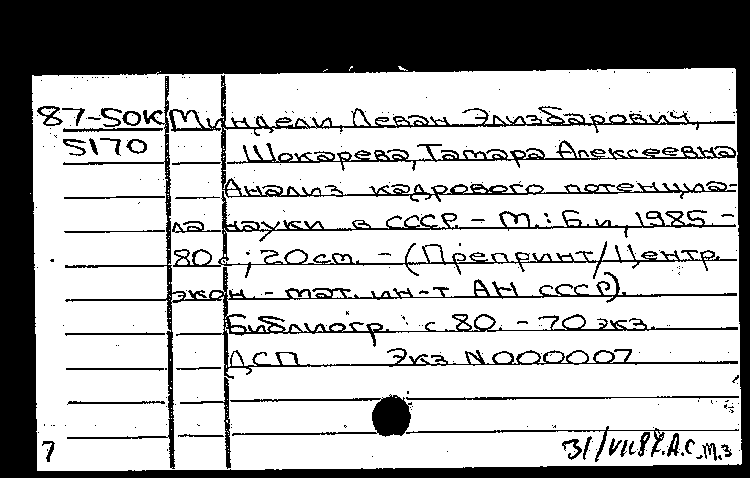 87-50К Миндели, Леван Элизбарович,
5170 Шокарева, Тамара Алексеевна
Анализ кадрового потенциа-
ла науки в СССР. - М.: Б.и., 1985. -
80с.; 20 см. - (Препринт/Центр.
экон. - мат. ин-т АН СССР).
Библиогр.: с 80. - 70 экз.
ДСП Экз. N000007
7 31/VII 87. А.С. М.З